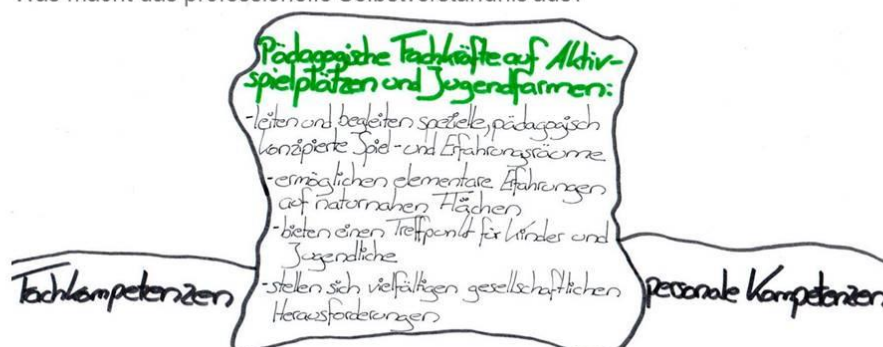 Was macht das professionelle Selbstverständnis aus?
Pädagogische Fachkräfte auf Aktiv-
spielplätzen und Jugendfarmen:
-leiten und begleiten spezielle, pädagogisch
konzipierte Spiel- und Erfahrungsräume
-ermöglichen elementare Erfahrungen
auf naturnahen Flächen
-bieten einen Treffpunkt für Kinder und
Jugendliche
-stellen sich vielfältigen gesellschaftlichen
Herausforderungen
Fachkompetenzen
personale Kompetenzen